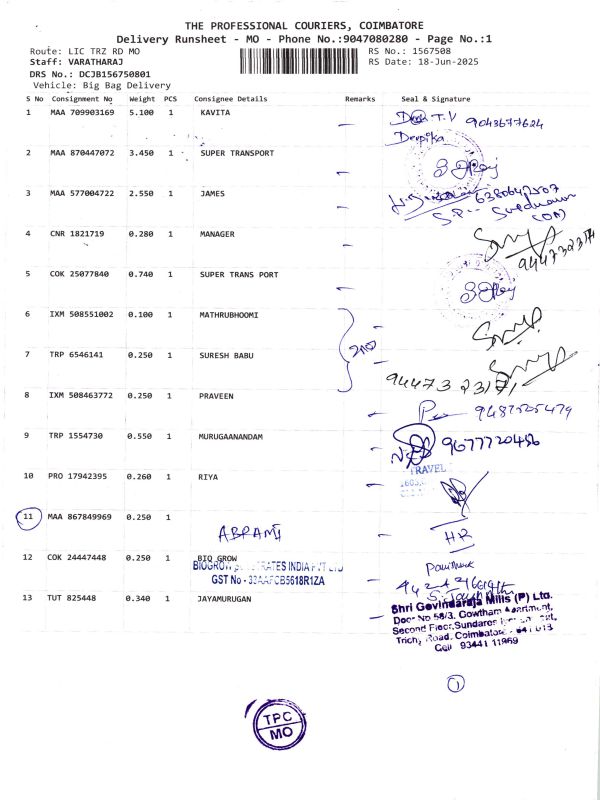 THE PROFESSIONAL COURIERS, COIMBATORE
Delivery Runsheet - MO - Phone No.:9047080280 - Page No.:1
Route: LIC TRZ RD MO
RS No.: 1567508
Staff: VARATHARAJ
RS Date: 18-Jun-2025
DRS No.: DCJB156750801
Vehicle: Big Bag Delivery
S No Consignment No Weight PCS Consignee Details Remarks Seal & Signature
1 MAA 709903169 5.100 1 KAVITA
T.V 9043677624
Deepika
2 MAA 870447072 3.450 1 SUPER TRANSPORT
3 MAA 577004722 2.550 1 JAMES
4 CNR 1821719 0.280 1 MANAGER
5 COK 25077840 0.740 1 SUPER TRANS PORT
6 IXM 508551002 0.100 1 MATHRUBHOOMI
7 TRP 6546141 0.250 1 SURESH BABU
94473 23171
8 IXM 508463772 0.250 1 PRAVEEN
9487525479
9 TRP 1554730 0.550 1 MURUGAANANDAM
9677720456
TRAVEL
10 PRO 17942395 0.260 1 RIYA
11 MAA 867849969 0.250 1
ABRAMI
HR
12 COK 24447448 0.250 1 BIO GROW
GST No - 33AAFCB5618R1ZA
13 TUT 825448 0.340 1 JAYAMURUGAN
Shri Govindaraja Mills (P) Ltd.
Door No 58/3, Gowtham Apartment,
Second Floor,
Trichy Road, Coimbatore
Cell 93441 11969
1
TPC
MO